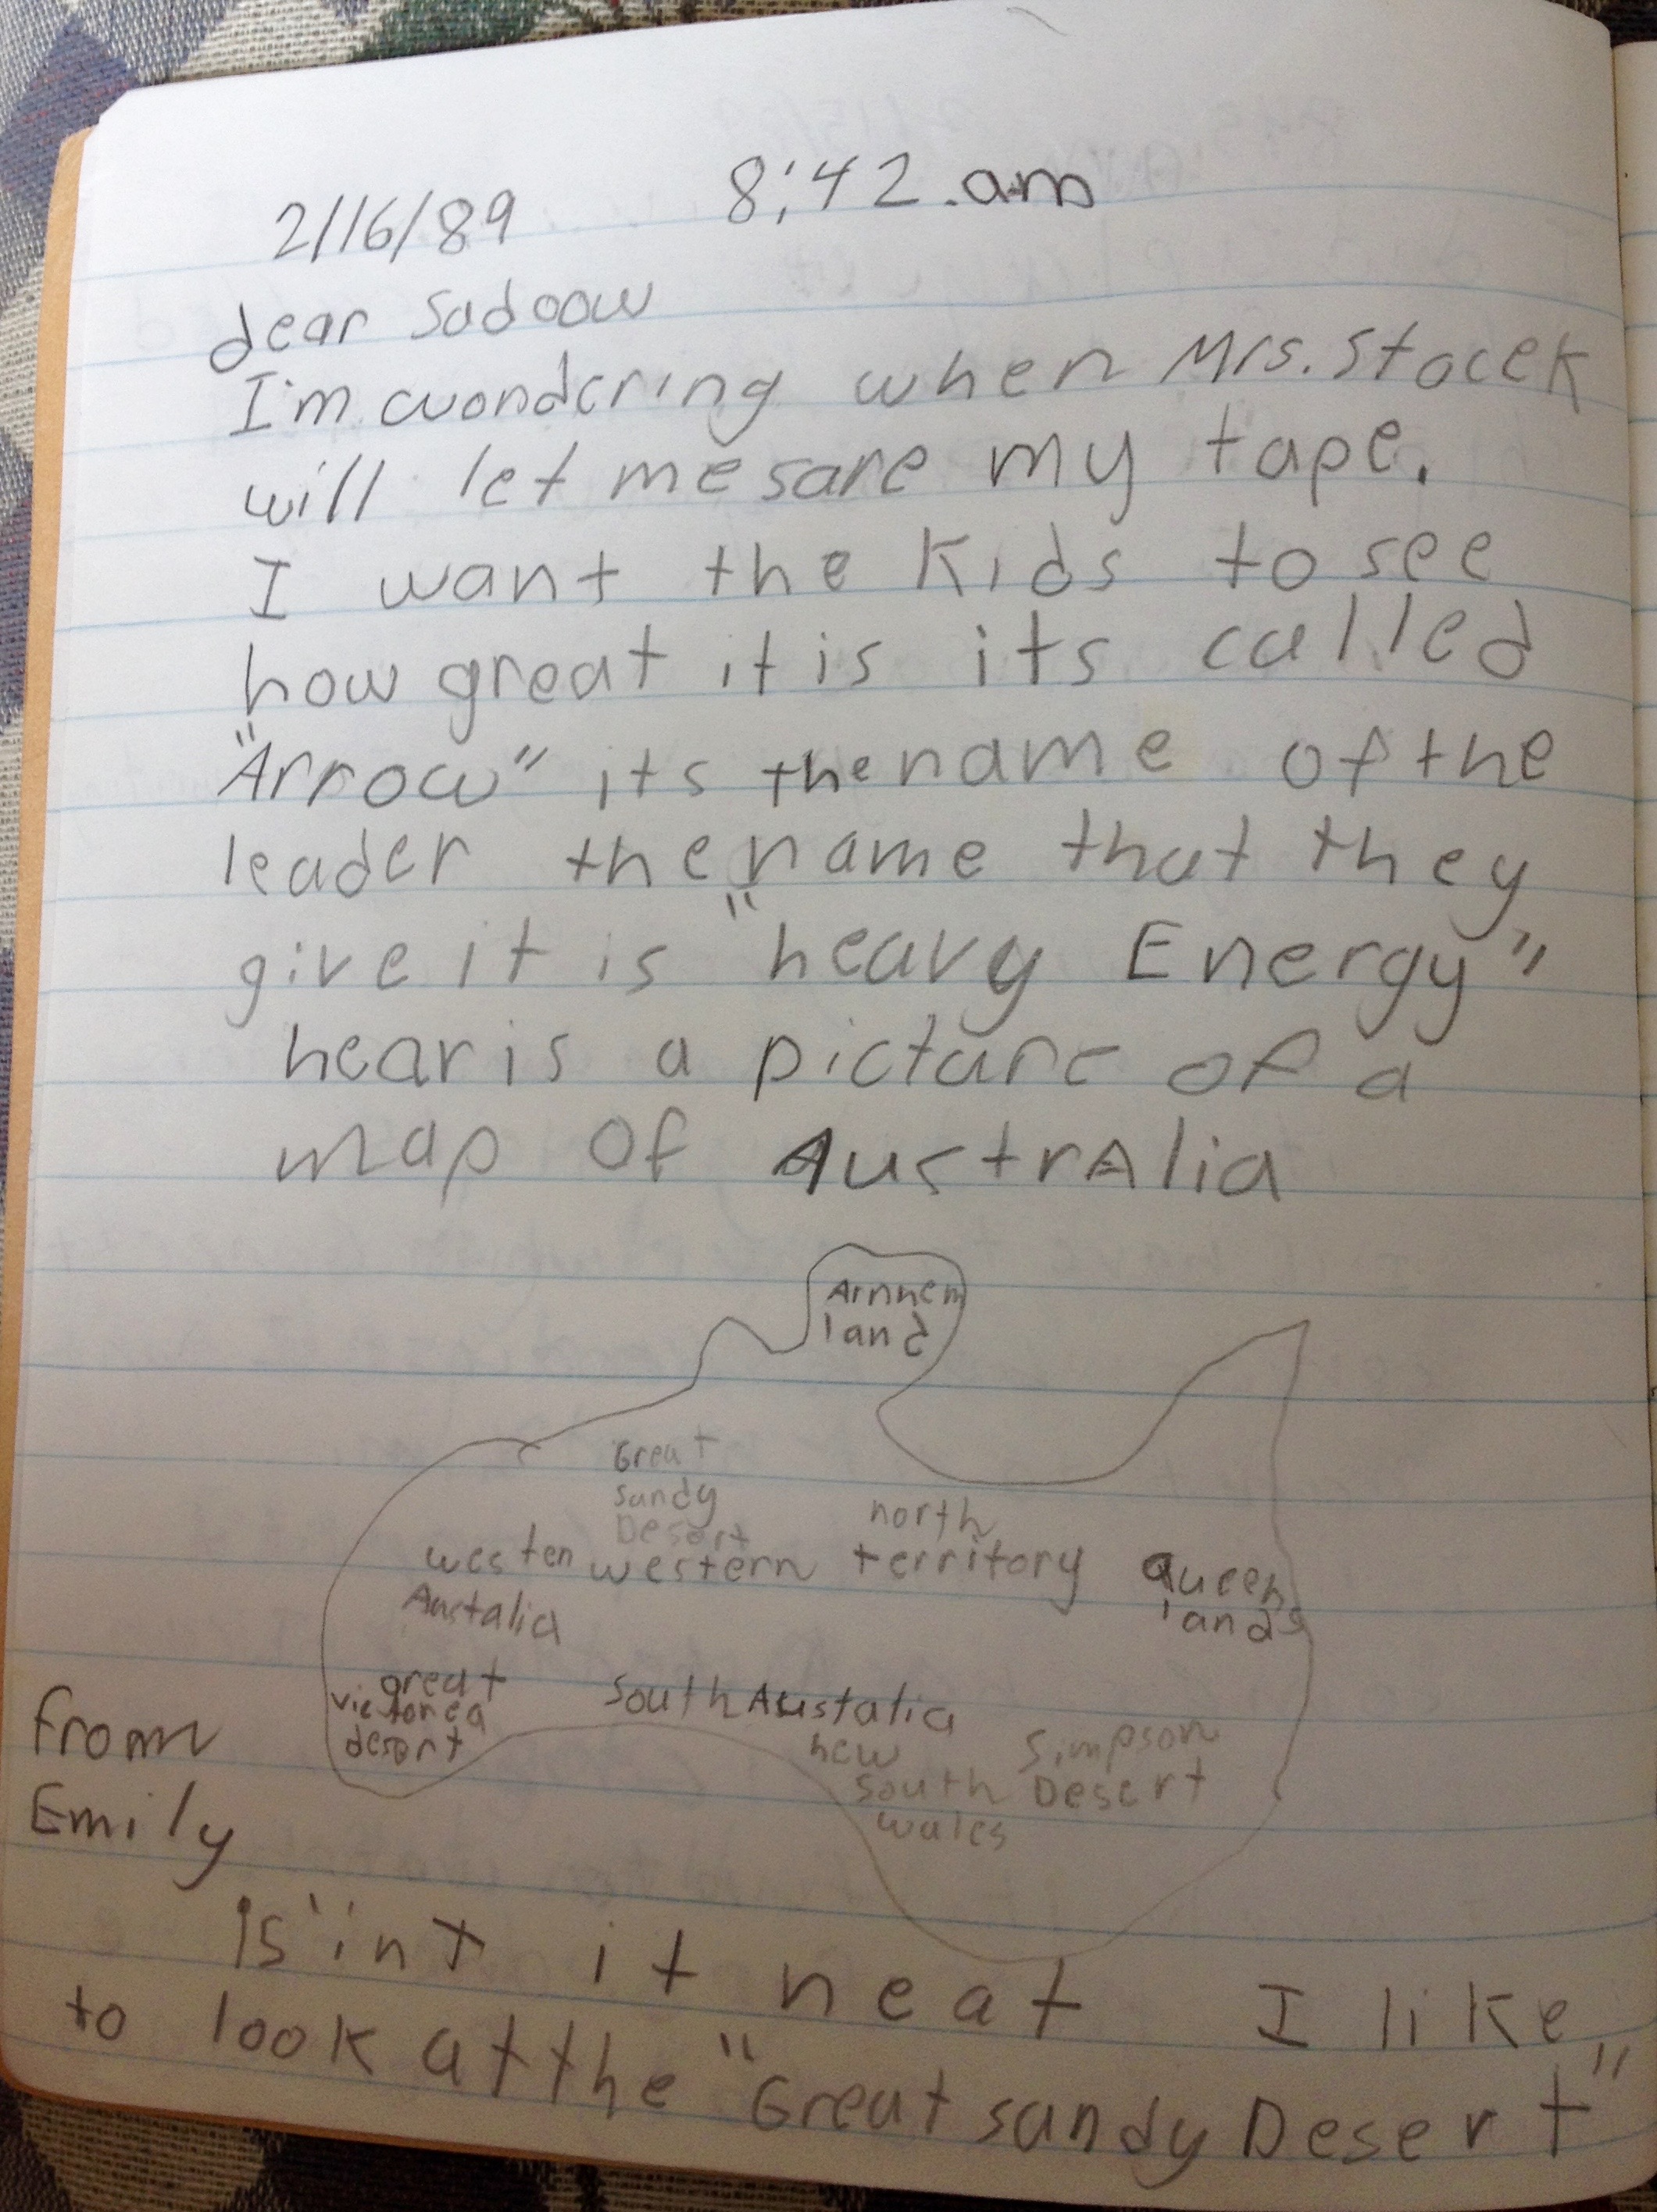 2/16/89 8:42.am
dear Sadoow
I'm wondering when Mrs. Stocek
will let me sare my tape.
I want the Kids to see
how great it is its called
"Arrow" its the name of the
leader the name that they
give it is "heavy Energy"
hear is a picture of a
map of AustrAlia
Arnhem
land
Great
sandy
Desert
north
westen western territory Queen
Austalia lands
great
victorea South Austalia
desert
new Simpson
South Desert
wales
from
Emily
is'int it neat I like
to look at the "Great sandy Desert"